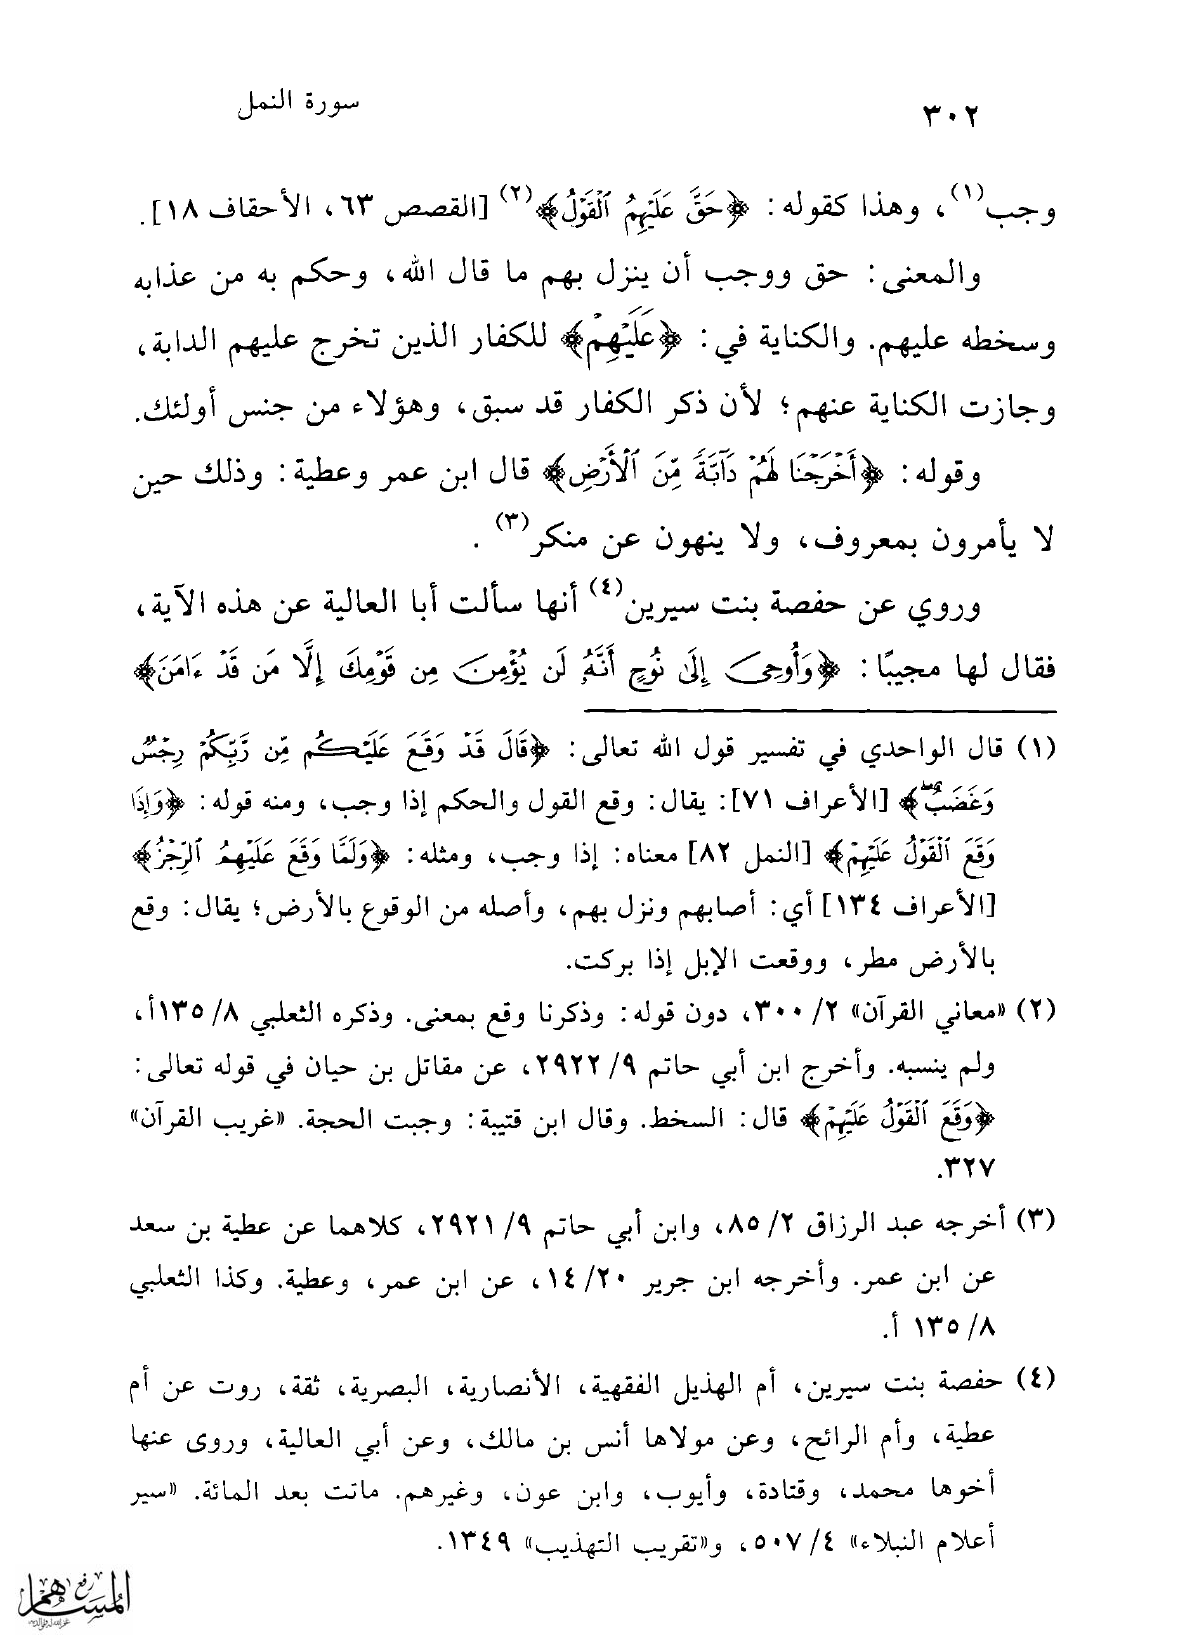 ٣٠٢ سورة النمل
وجب(١)، وهذا كقوله: ﴿حَقَّ عَلَيْهِمُ ٱلْقَوْلُ﴾(٢) [القصص ٦٣، الأحقاف ١٨].
والمعنى: حق ووجب أن ينزل بهم ما قال الله، وحكم به من عذابه
وسخطه عليهم. والكناية في: ﴿عَلَيْهِمْ﴾ للكفار الذين تخرج عليهم الدابة،
وجازت الكناية عنهم؛ لأن ذكر الكفار قد سبق، وهؤلاء من جنس أولئك.
وقوله: ﴿أَخْرَجْنَا لَهُمْ دَآبَّةً مِّنَ ٱلْأَرْضِ﴾ قال ابن عمر وعطية: وذلك حين
لا يأمرون بمعروف، ولا ينهون عن منكر(٣).
وروي عن حفصة بنت سيرين(٤) أنها سألت أبا العالية عن هذه الآية،
فقال لها مجيبًا: ﴿وَأُوحِىَ إِلَىٰ نُوحٍ أَنَّهُۥ لَن يُؤْمِنَ مِن قَوْمِكَ إِلَّا مَن قَدْ ءَامَنَ﴾
(١) قال الواحدي في تفسير قول الله تعالى: ﴿قَالَ قَدْ وَقَعَ عَلَيْكُم مِّن رَّبِّكُمْ رِجْسٌ
وَغَضَبٌ ۖ﴾ [الأعراف ٧١]: يقال: وقع القول والحكم إذا وجب، ومنه قوله: ﴿وَإِذَا
وَقَعَ ٱلْقَوْلُ عَلَيْهِمْ﴾ [النمل ٨٢] معناه: إذا وجب، ومثله: ﴿وَلَمَّا وَقَعَ عَلَيْهِمُ ٱلرِّجْزُ﴾
[الأعراف ١٣٤] أي: أصابهم ونزل بهم، وأصله من الوقوع بالأرض؛ يقال: وقع
بالأرض مطر، ووقعت الإبل إذا بركت.
(٢) «معاني القرآن» ٢/ ٣٠٠، دون قوله: وذكرنا وقع بمعنى. وذكره الثعلبي ٨/ ١٣٥أ،
ولم ينسبه. وأخرج ابن أبي حاتم ٩/ ٢٩٢٢، عن مقاتل بن حيان في قوله تعالى:
﴿وَقَعَ ٱلْقَوْلُ عَلَيْهِمْ﴾ قال: السخط. وقال ابن قتيبة: وجبت الحجة. «غريب القرآن»
٣٢٧.
(٣) أخرجه عبد الرزاق ٢/ ٨٥، وابن أبي حاتم ٩/ ٢٩٢١، كلاهما عن عطية بن سعد
عن ابن عمر. وأخرجه ابن جرير ٢٠/ ١٤، عن ابن عمر، وعطية. وكذا الثعلبي
٨/ ١٣٥ أ.
(٤) حفصة بنت سيرين، أم الهذيل الفقهية، الأنصارية، البصرية، ثقة، روت عن أم
عطية، وأم الرائح، وعن مولاها أنس بن مالك، وعن أبي العالية، وروى عنها
أخوها محمد، وقتادة، وأيوب، وابن عون، وغيرهم. ماتت بعد المائة. «سير
أعلام النبلاء» ٤/ ٥٠٧، و«تقريب التهذيب» ١٣٤٩.